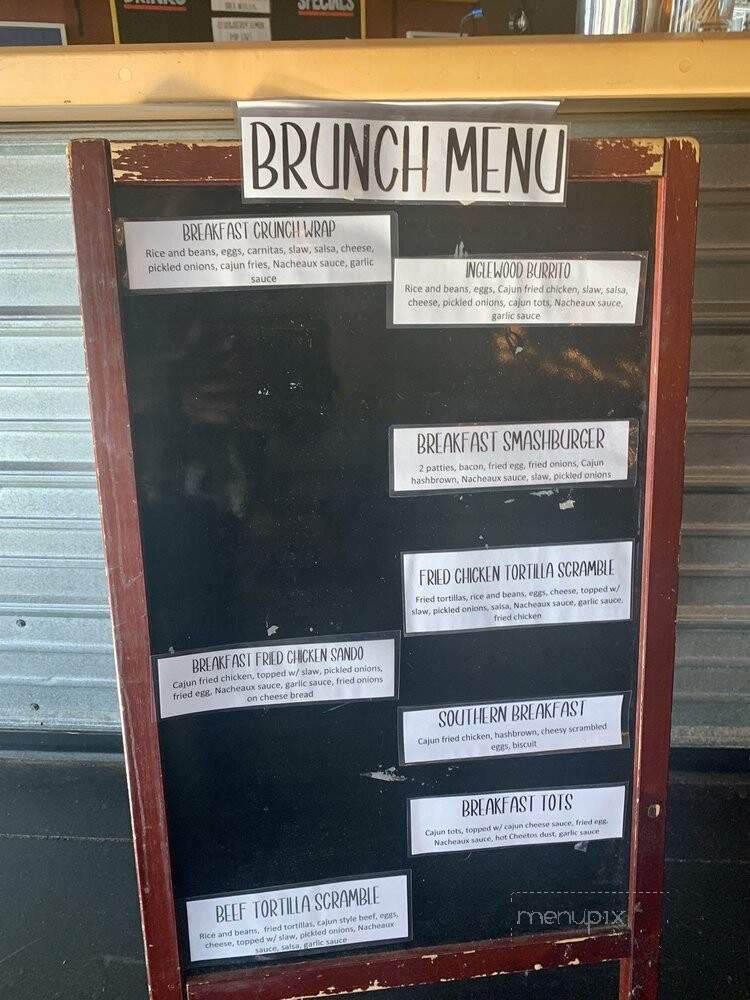 DRINKS
SPECIALS
BRUNCH MENU
BREAKFAST CRUNCH WRAP
Rice and beans, eggs, carnitas, slaw, salsa, cheese,
pickled onions, cajun fries, Nacheaux sauce, garlic
sauce
INGLEWOOD BURRITO
Rice and beans, eggs, Cajun fried chicken, slaw, salsa,
cheese, pickled onions, cajun tots, Nacheaux sauce,
garlic sauce
BREAKFAST SMASHBURGER
2 patties, bacon, fried egg, fried onions, Cajun
hashbrown, Nacheaux sauce, slaw, pickled onions
FRIED CHICKEN TORTILLA SCRAMBLE
Fried tortillas, rice and beans, eggs, cheese, topped w/
slaw, pickled onions, salsa, Nacheaux sauce, garlic sauce,
fried chicken
BREAKFAST FRIED CHICKEN SANDO
Cajun fried chicken, topped w/ slaw, pickled onions,
fried egg, Nacheaux sauce, garlic sauce, fried onions
on cheese bread
SOUTHERN BREAKFAST
Cajun fried chicken, hashbrown, cheesy scrambled
eggs, biscuit
BREAKFAST TOTS
Cajun tots, topped w/ cajun cheese sauce, fried egg,
Nacheaux sauce, hot Cheetos dust, garlic sauce
BEEF TORTILLA SCRAMBLE
Rice and beans, fried tortillas, cajun style beef, eggs,
cheese, topped w/ slaw, pickled onions, Nacheaux
sauce, salsa, garlic sauce
menupix